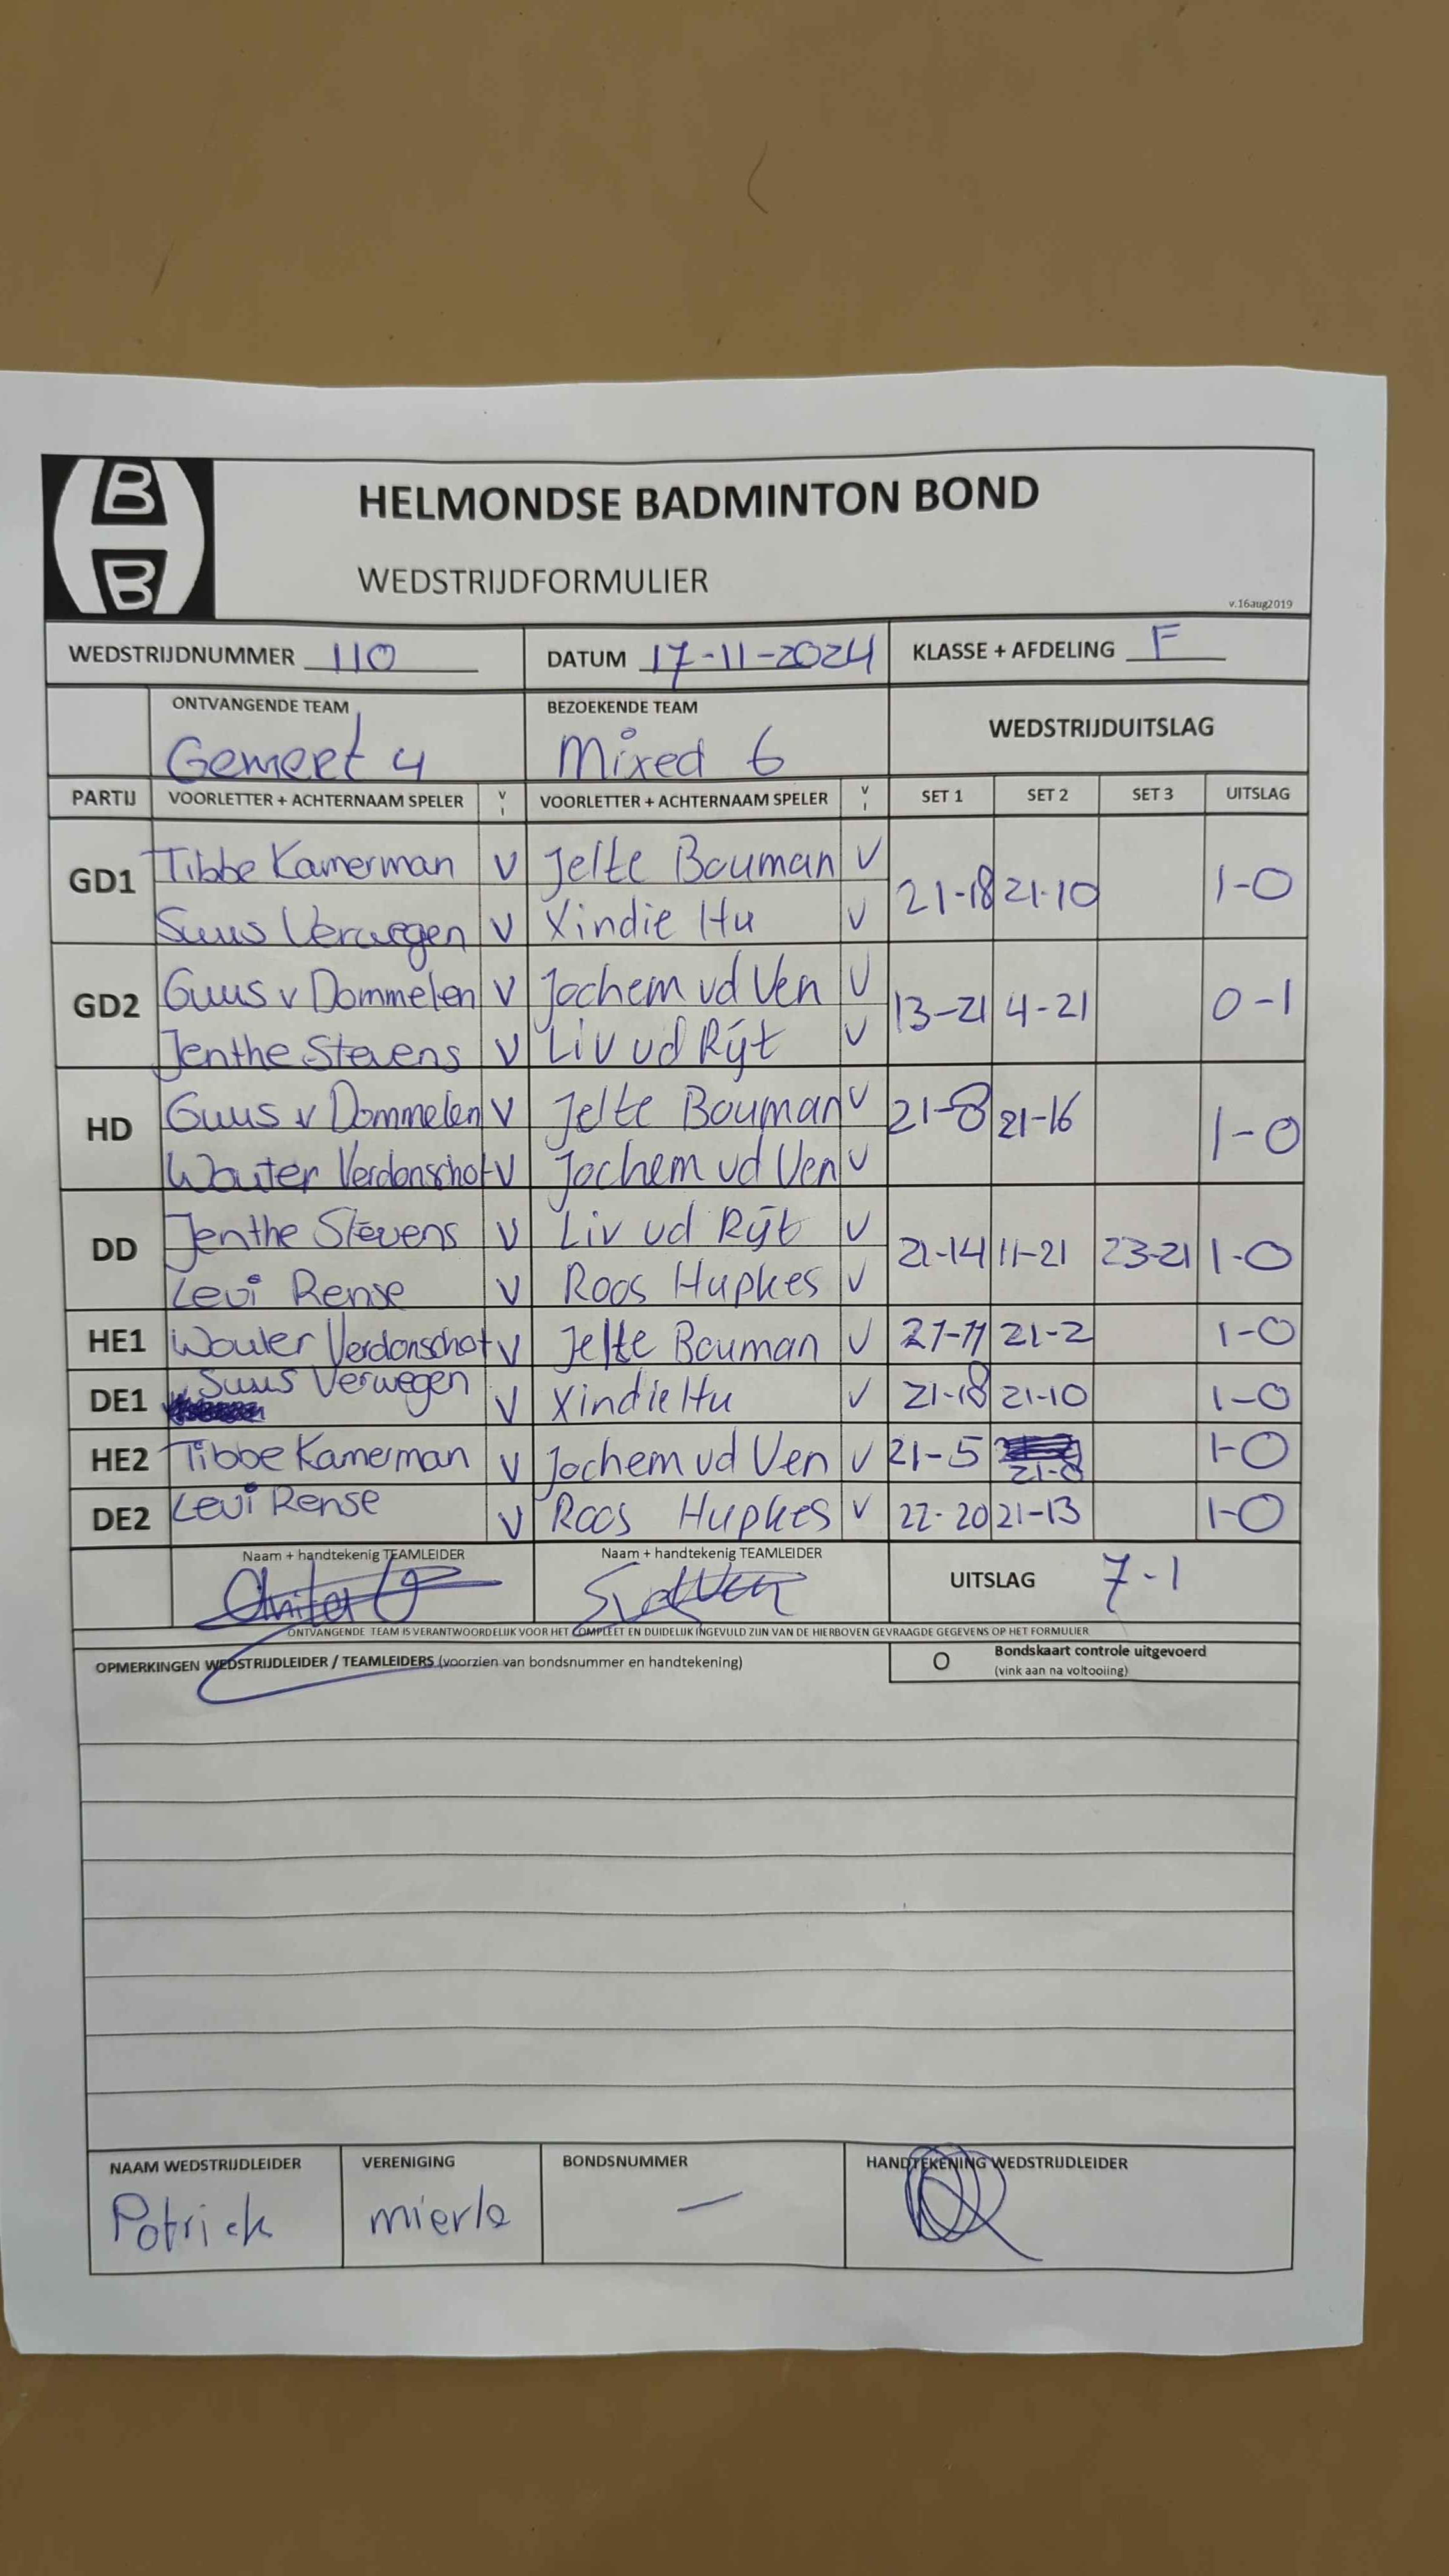 B
B
HELMONDSE BADMINTON BOND
WEDSTRIJDFORMULIER
v.16aug2019
WEDSTRIJDNUMMER 110 DATUM 17-11-2024 KLASSE + AFDELING F
ONTVANGENDE TEAM BEZOEKENDE TEAM WEDSTRIJDUITSLAG
Gemert 4 Mixed 6
PARTIJ VOORLETTER + ACHTERNAAM SPELER V I VOORLETTER + ACHTERNAAM SPELER V I SET 1 SET 2 SET 3 UITSLAG
Tibbe Kamerman V Jelte Bouman V
GD1 21-18 21-10 1-0
Suus Verwegen V Xindie Hu V
Guus v Dommelen V Jochem vd Ven V
GD2 13-21 4-21 0-1
Jenthe Stevens V Liv vd Rijt V
Guus v Dommelen V Jelte Bouman V
HD 21-8 21-16 1-0
Wouter Verdonschot V Jochem vd Ven V
Jenthe Stevens V Liv vd Rijt V
DD 21-14 11-21 23-21 1-0
Levi Rense V Roos Hupkes V
HE1 Wouter Verdonschot V Jelte Bouman V 21-11 21-2 1-0
DE1 Suus Verwegen V Xindie Hu V 21-18 21-10 1-0
HE2 Tibbe Kamerman V Jochem vd Ven V 21-5 21-8 1-0
DE2 Levi Rense V Roos Hupkes V 22-20 21-13 1-0
Naam + handtekenig TEAMLEIDER Naam + handtekenig TEAMLEIDER
UITSLAG 7-1
ONTVANGENDE TEAM IS VERANTWOORDELIJK VOOR HET COMPLEET EN DUIDELIJK INGEVULD ZIJN VAN DE HIERBOVEN GEVRAAGDE GEGEVENS OP HET FORMULIER
OPMERKINGEN WEDSTRIJDLEIDER / TEAMLEIDERS (voorzien van bondsnummer en handtekening) O Bondskaart controle uitgevoerd
(vink aan na voltooiing)
NAAM WEDSTRIJDLEIDER VERENIGING BONDSNUMMER HANDTEKENING WEDSTRIJDLEIDER
Patrick mierlo —